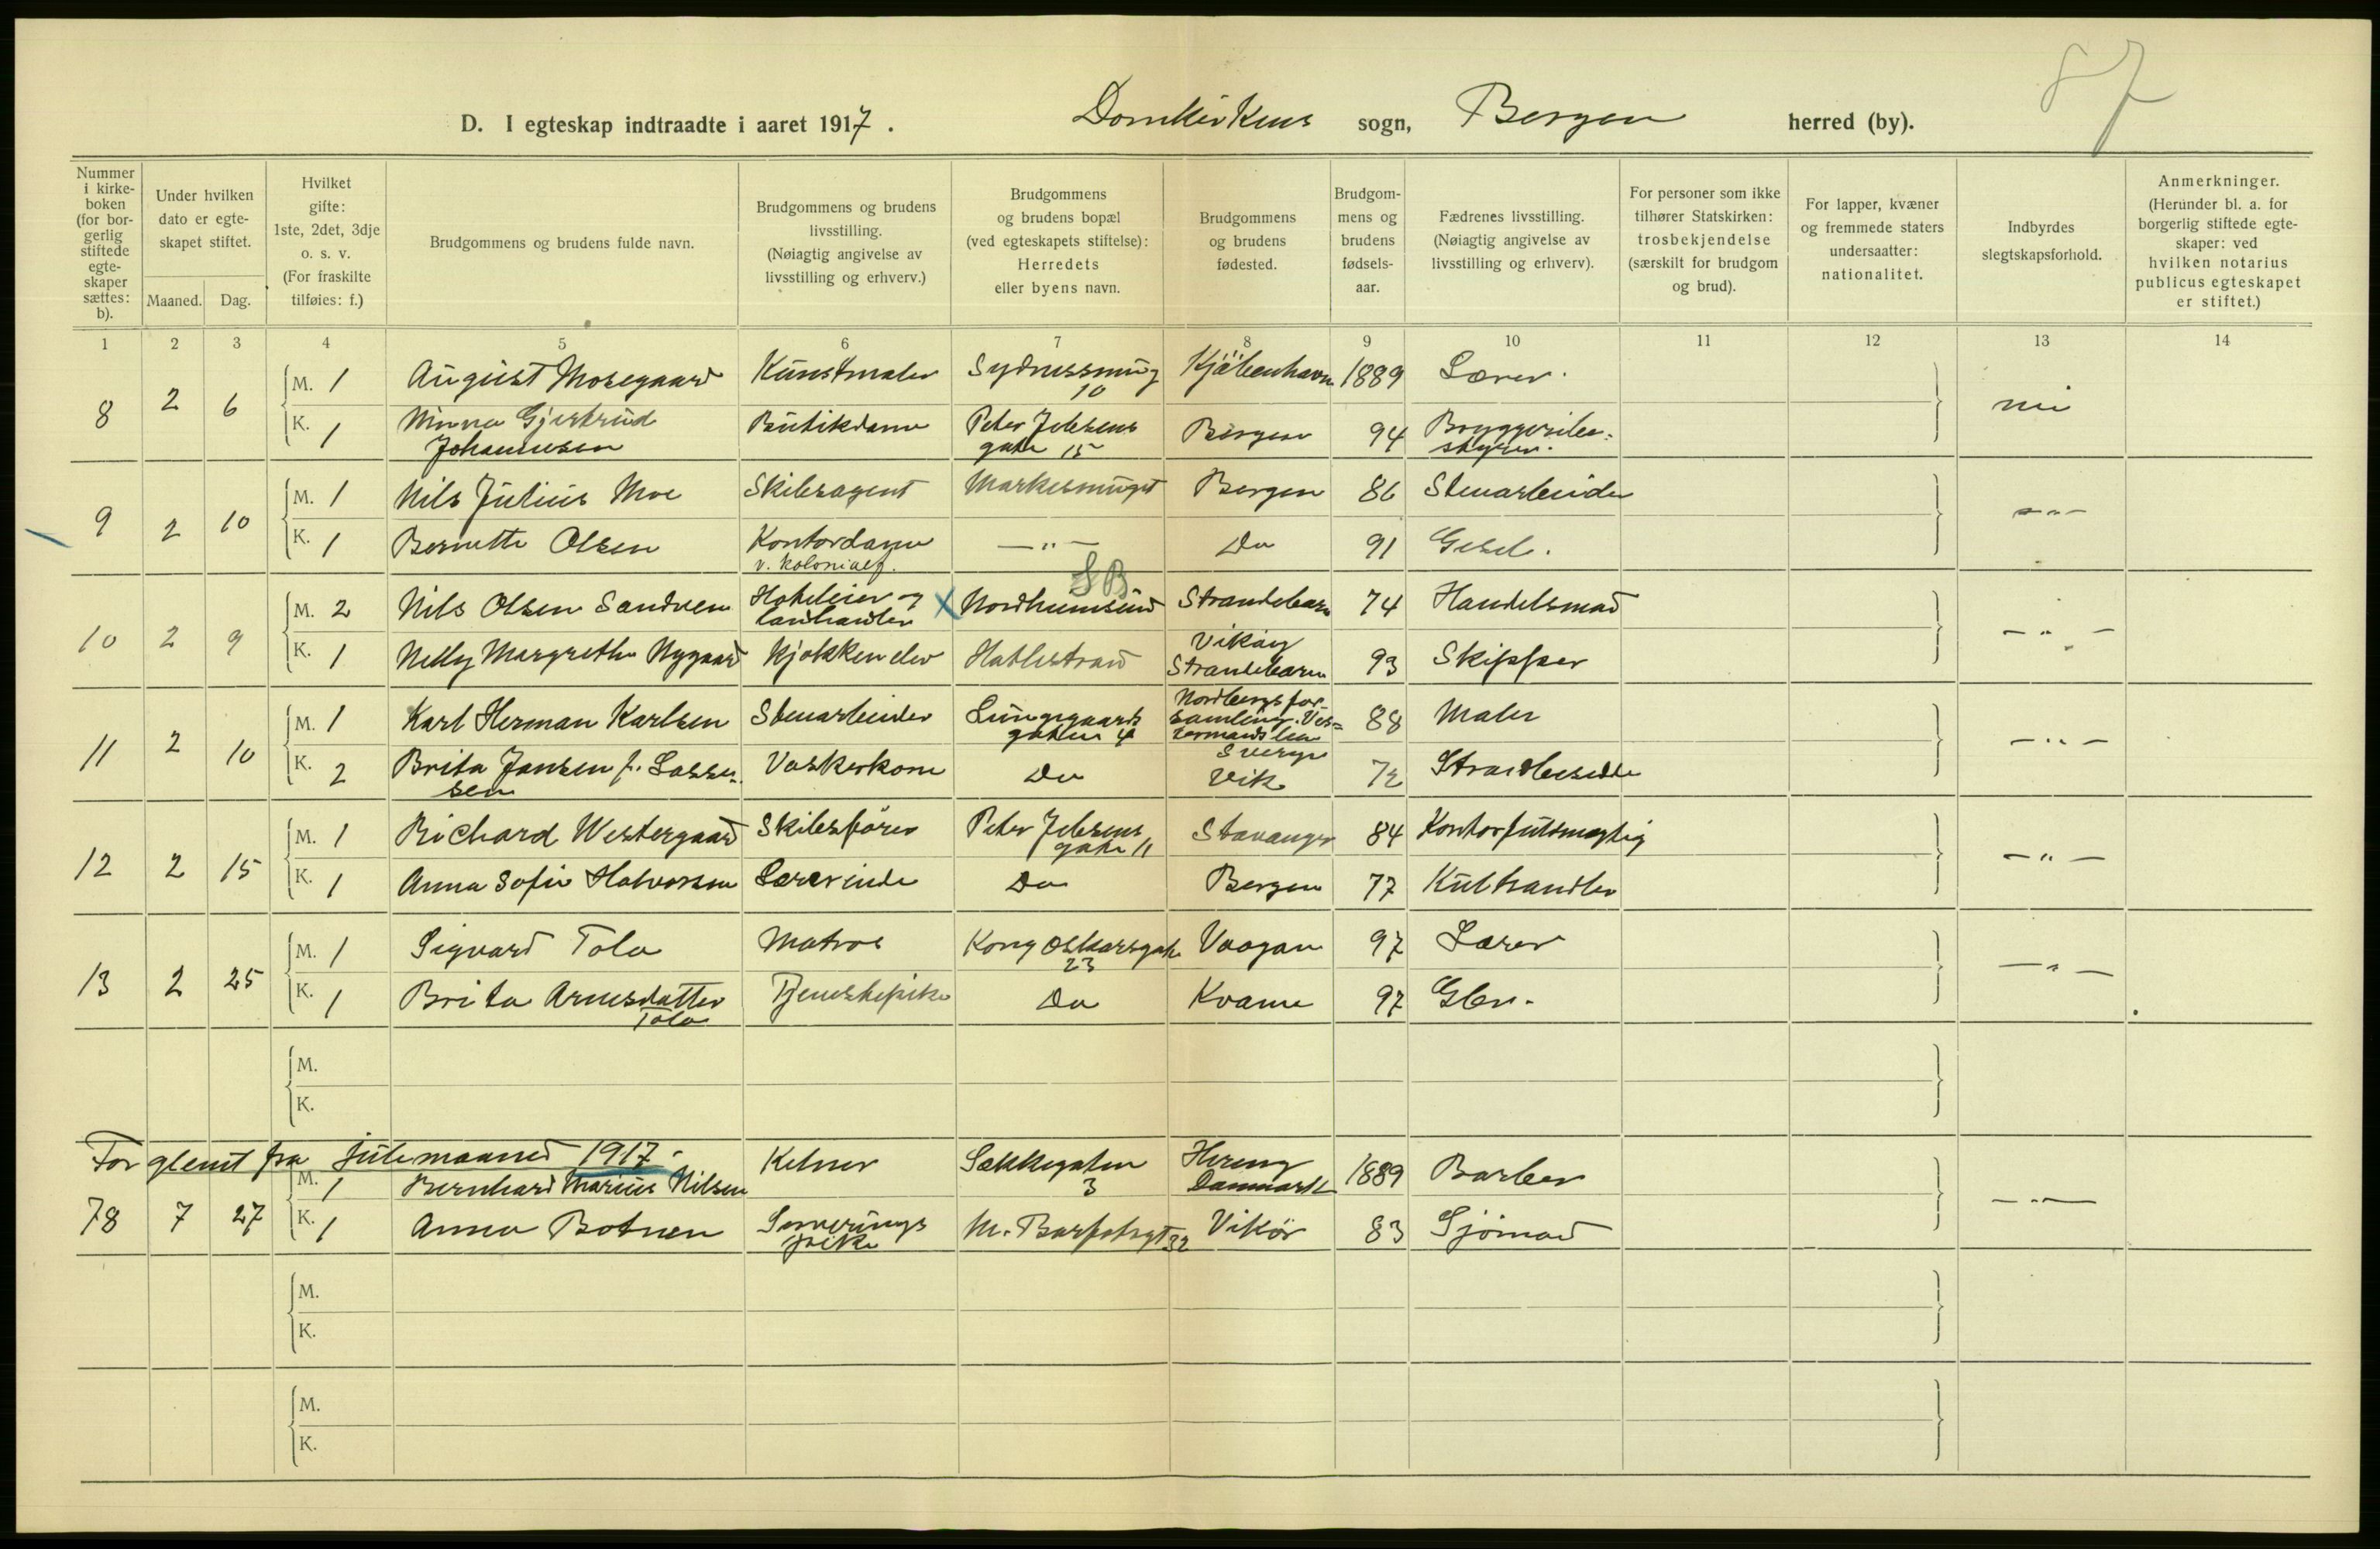 87
D. I egteskap indtraadte i aaret 1917. Domkirkens sogn, Bergen herred (by).
Nummer i kirke-boken (for bor-gerlig stiftede egte-skaper sættes: b).
Under hvilken dato er egte-skapet stiftet.
Maaned. Dag.
Hvilket gifte: 1ste, 2det, 3dje o. s. v. (For fraskilte tilføies: f.)
Brudgommens og brudens fulde navn.
Brudgommens og brudens livsstilling. (Nøiagtig angivelse av livsstilling og erhverv.)
Brudgommens og brudens bopæl (ved egteskapets stiftelse): Herredets eller byens navn.
Brudgommens og brudens fødested.
Brudgom-mens og brudens fødsels-aar.
Fædrenes livsstilling. (Nøiagtig angivelse av livsstilling og erhverv).
For personer som ikke tilhører Statskirken: trosbekjendelse (særskilt for brudgom og brud).
For lapper, kvæner og fremmede staters undersaatter: nationalitet.
Indbyrdes slegtskapsforhold.
Anmerkninger. (Herunder bl. a. for borgerlig stiftede egte-skaper: ved hvilken notarius publicus egteskapet er stiftet.)
1 2 3 4 5 6 7 8 9 10 11 12 13 14
8 2 6 M. 1 August Mosegaard Kunstmaler Sydnessmug 10 Kjöbenhavn 1889 Lærer.
K. 1 Minna Gjertrud Johannesen Butikdame Peter Jebsens gate 15 Bergen 94 Bryggeribe=styrer. nei
9 2 10 M. 1 Nils Julius Moe Skibsagent Markesmuget Bergen 86 Stenarbeider
K. 1 Bernette Olsen Kontordame v. Kolonialf. —"— Do 91 Gesel. —"—
SB
10 2 9 M. 2 Nils Olsen Sandven Hoteleier og landhandler x Nordheimsund Strandebarm 74 Handelsmad
K. 1 Nelly Margrethe Nygaard Kjøkkenelev Hatlestrand Vikøy Strandebarm 93 Skipper —"—
11 2 10 M. 1 Karl Herman Karlsen Stenarbeider Lungegaards gaten 4 Nordbergs for-samling. Ves=termandslen Sverge 88 Maler
K. 2 Brita Jansen f. Lasse-sen Vaskerkone Do Vik 72 Strandsidde —"—
12 2 15 M. 1 Richard Westergaard Skibsförer Peter Jebsens gate 11 Stavanger 84 Kontorfuldmægtig
K. 1 Anna Sofie Halvorsen Lærerinde Do Bergen 77 Kulhandler —"—
13 2 25 M. 1 Sigvard Tolo Matros Kong Oskarsgate 23 Vaagan 97 Lærer
K. 1 Brita Arnesdatter Tolo Tjenestepike Do Kvame 97 Gbr. —"—
M.
K.
Forglemt fra julimaaned 1917.
78 7 27 M. 1 Bernhard Marius Nilsen Kelner Sækkegaten 3 Herning Danmark 1889 Barber
K. 1 Anna Botnen Serverings pike M. Barfotsgt 32 Vikør 83 Sjömand —"—
M.
K.
M.
K.